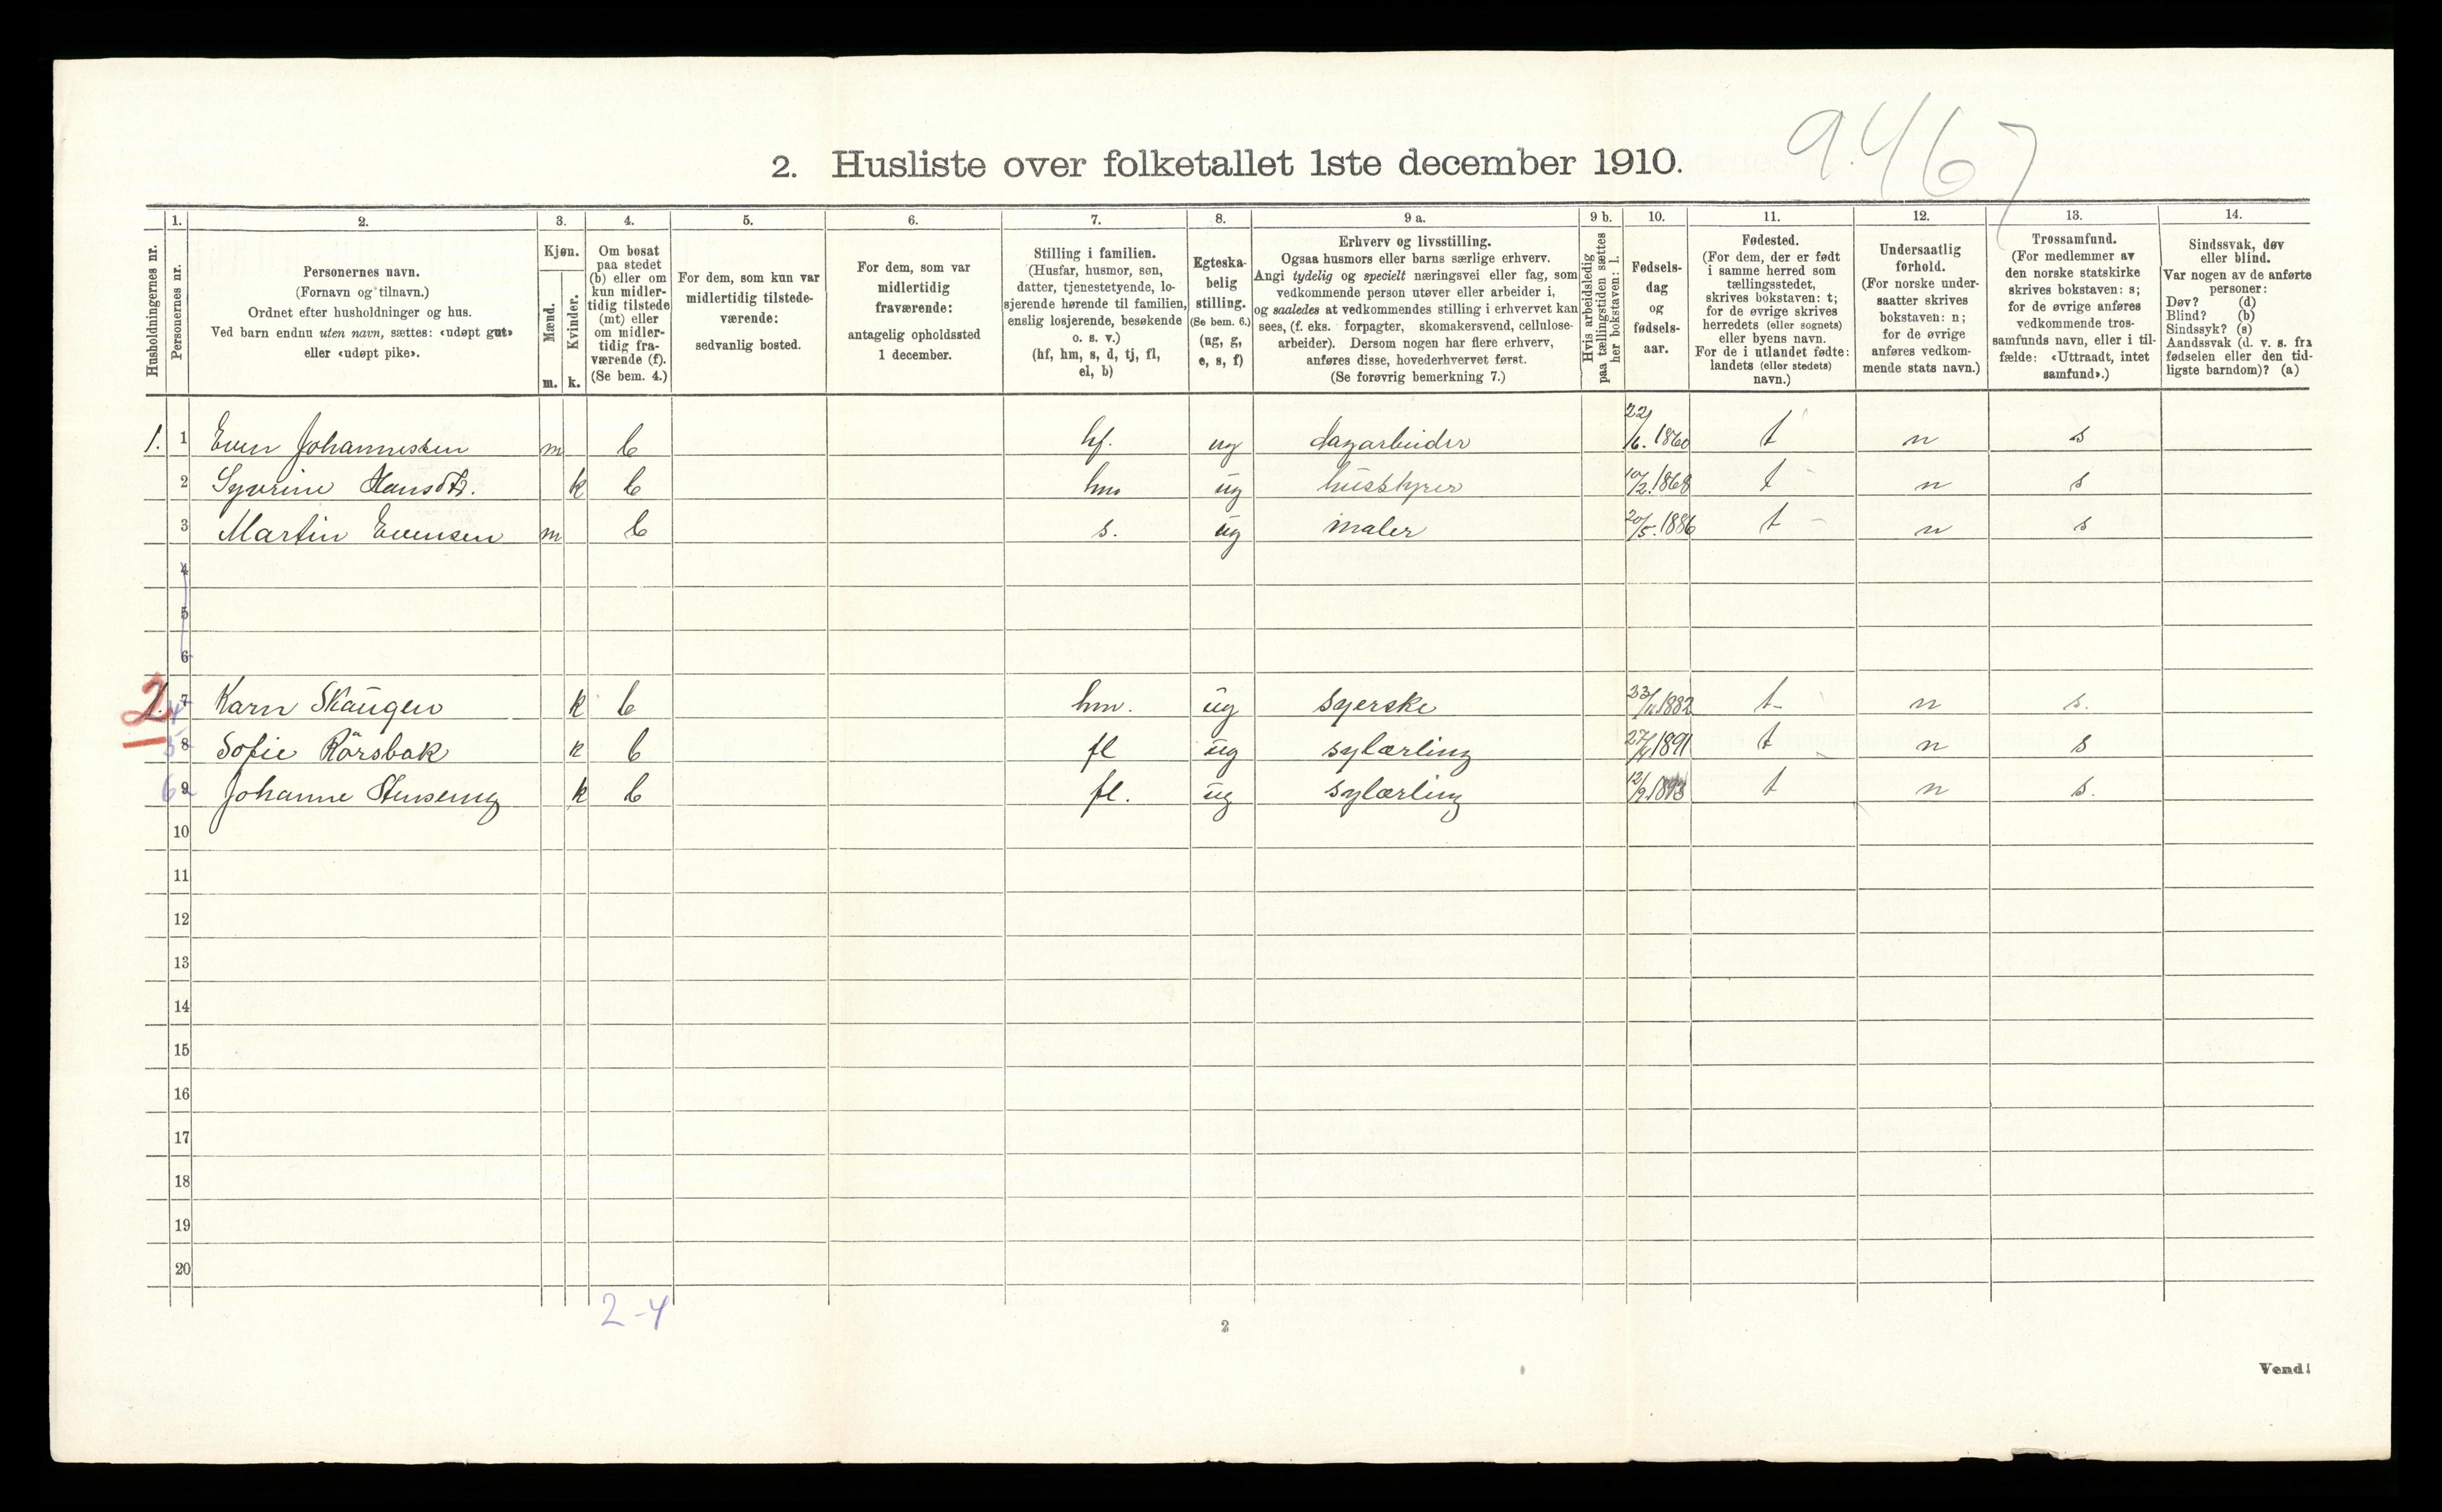 9.467
2. Husliste over folketallet 1ste december 1910.
Husholdningernes nr.
1. Personernes nr.
2. Personernes navn. (Fornavn og tilnavn.) Ordnet efter husholdninger og hus. Ved barn endnu uten navn, sættes: «udøpt gut» eller «udøpt pike».
3. Kjøn. Mænd. m. Kvinder. k.
4. Om bosat paa stedet (b) eller om kun midlertidig tilstede (mt) eller om midlertidig fraværende (f). (Se bem. 4.)
5. For dem, som kun var midlertidig tilstedeværende: sedvanlig bosted.
6. For dem, som var midlertidig fraværende: antagelig opholdssted 1 december.
7. Stilling i familien. (Husfar, husmor, søn, datter, tjenestetyende, losjerende hørende til familien, enslig losjerende, besøkende o. s. v.) (hf, hm, s, d, tj, fl, el, b)
8. Egteskabelig stilling. (Se bem. 6.) (ug, g, e, s, f)
9 a. Erhverv og livsstilling. Ogsaa husmors eller barns særlige erhverv. Angi tydelig og specielt næringsvei eller fag, som vedkommende person utøver eller arbeider i, og saaledes at vedkommendes stilling i erhvervet kan sees, (f. eks. forpagter, skomakersvend, cellulosearbeider). Dersom nogen har flere erhverv, anføres disse, hovederhvervet først. (Se forøvrig bemerkning 7.)
9 b. Hvis arbeidsledig paa tællingstiden sættes her bokstaven: l.
10. Fødselsdag og fødselsaar.
11. Fødested. (For dem, der er født i samme herred som tællingsstedet, skrives bokstaven: t; for de øvrige skrives herredets (eller sognets) eller byens navn. For de i utlandet fødte: landets (eller stedets) navn.)
12. Undersaatlig forhold. (For norske undersaatter skrives bokstaven: n; for de øvrige anføres vedkommende stats navn.)
13. Trossamfund. (For medlemmer av den norske statskirke skrives bokstaven: s; for de øvrige anføres vedkommende trossamfunds navn, eller i tilfælde: «Uttraadt, intet samfund».)
14. Sindssvak, døv eller blind. Var nogen av de anførte personer: Døv? (d) Blind? (b) Sindssyk? (s) Aandssvak (d. v. s. fra fødselen eller den tidligste barndom)? (a)
1. 1 Even Johannessen m b hf. ug dagarbeider 22/6. 1860 t n s
2 Syverine Hansdtr. k b hm ug husstyrer 10/2. 1868 t n s
3 Martin Evensen m b s. ug maler 20/5. 1886 t n s
4
5
6
2 7 4 Karn Skaugen k b hm. ug syerske 1882 t n s.
8 5 Sofie Rörsbak k b fl ug sylærling 1891 t n s
9 6 Johanne Stenseng k b fl. ug sylærling 12/9. 1893 t n s.
10
11
12
13
14
15
16
17
18
19
20
2-4
2
Vend!